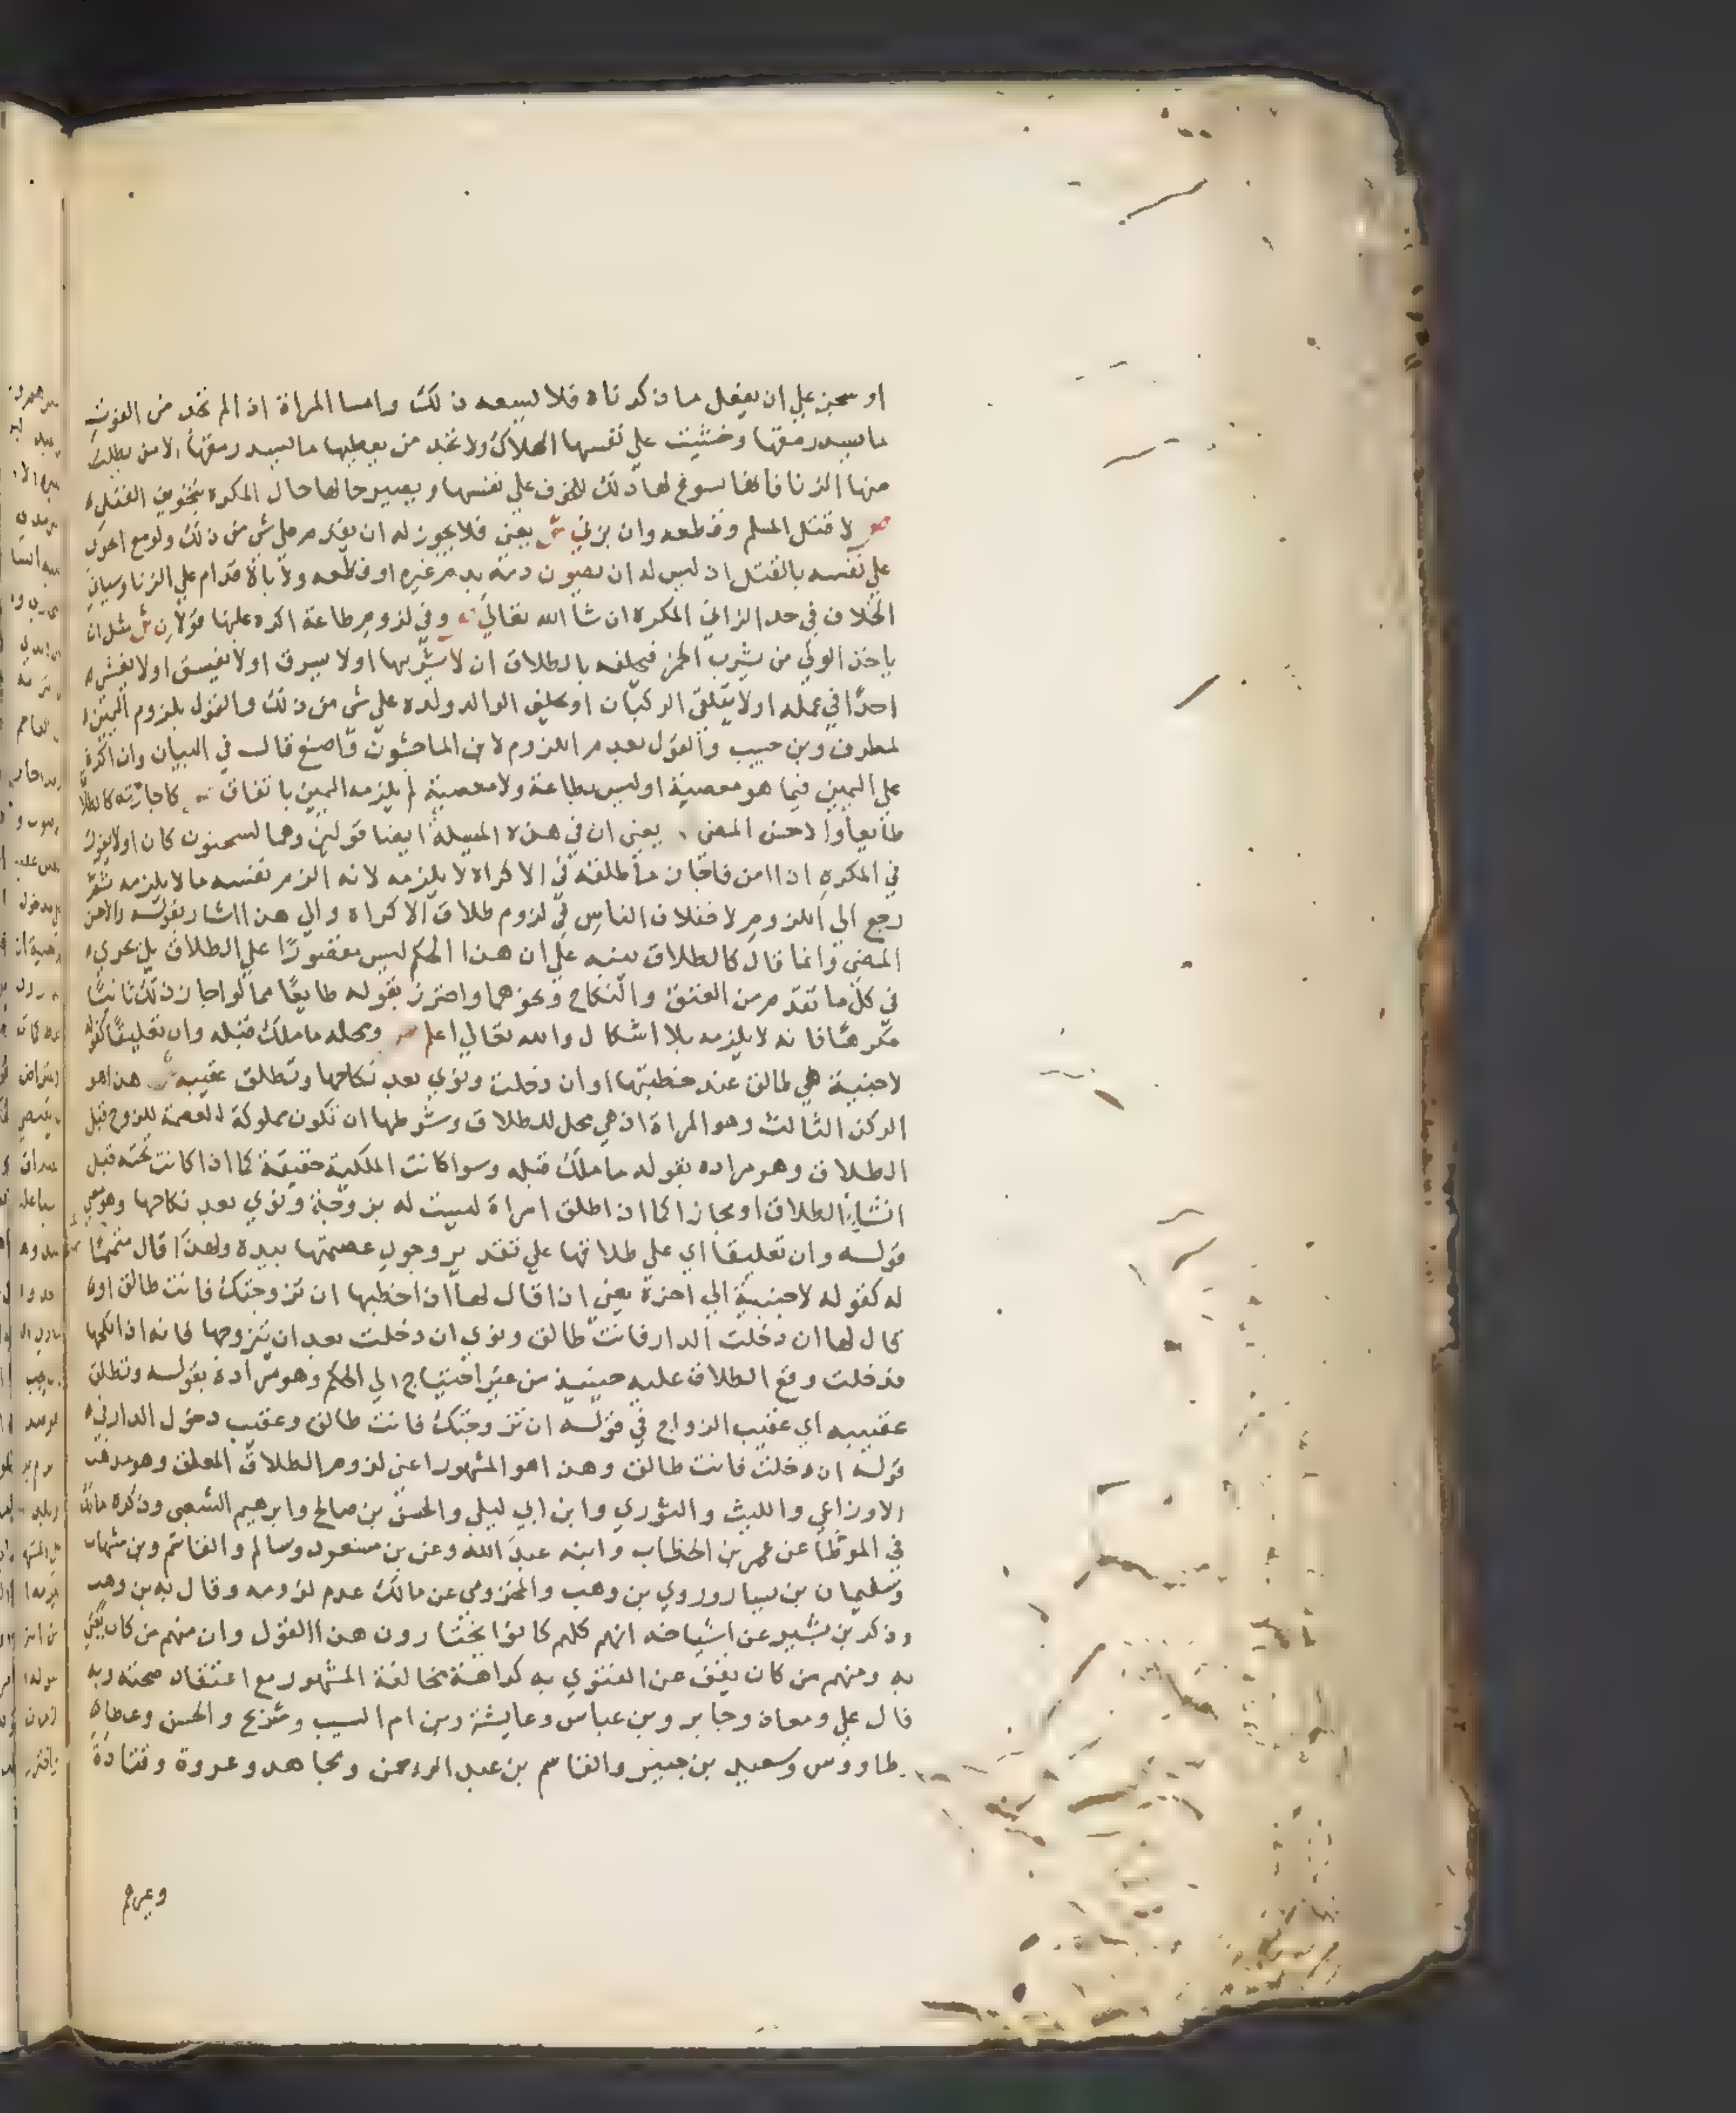 او سجن علي ان يفعل ما ذكرناه فلا يسعه ذلك واما المراة اذا لم تجد من القوت
ما يسد رمقها وخشيت علي نفسها الهلاك ولا تجد من يعطيها ما يسد رمقها الا من يطلب
منها الزنا فانها يسوغ لها ذلك للخوف علي نفسها ويصير حالها حال المكره بتخويف القتل
ص لا قتل المسلم وقطعه وان يزني ش يعني فلا يجوز له ان يقدم علي شي من ذلك ولو مع الخوف
علي نفسه بالقتل اذ ليس له ان يصون دمه بدم غيره او قطعه ولا بالاقدام علي الزنا وسياتي
الخلاف في حد الزاني المكره ان شا الله تعالي ص وفي لزوم طاعة اكره عليها قولان ش مثل ان
ياخذ الولي من يشرب الخمر فيحلفه بالطلاق ان لا يشربها او لا يسرق او لا يفسق او لا يغش
احدًا في عمله او لا يتلقي الركبان او يحلف الوالد ولده علي شي من ذلك والقول بلزوم اليمين
لمطرف وبن حبيب والقول بعدم اللزوم لابن الماجشون واصبغ قال في البيان وان اكره
علي اليمين فيما هو معصية او ليس بطاعة ولا معصية لم يلزمه اليمين باتفاق ص كاجازته كالطلاق
طايعا والاحسن المضي يعني ان في هذه المسيلة ايضا قولين وهما لسحنون كان اولا يقول
في المكره اذا امن فاجاز ما طلقه في الاكراه لا يلزمه لانه الزم نفسه ما لا يلزمه ثم
رجع الي اللزوم لاختلاف الناس في لزوم طلاق الاكراه والي هذا اشار بقوله والاحسن
المضي وانما قال كالطلاق لينبه علي ان هذا الحكم ليس مقصورًا علي الطلاق بل يجري
في كل ما تقدم من العتق والنكاح ونحوهما واحترز بقوله طايعًا مما لو اجاز ذلك ثانيًا
مكرهًا فانه لا يلزمه بلا اشكال والله تعالي اعلم ص ومحله ما ملك قبله وان تعليقًا كقوله
لاجنبية هي طالق عند خطبتها او ان دخلت ونوي بعد نكاحها وتطلق عقيبه ش هذا هو
الركن الثالث وهو المراة اذ هي محل للطلاق وشرطها ان تكون مملوكة العصمة للزوج قبل
الطلاق وهو مراده بقوله ما ملك قبله وسوا كانت الملكية حقيقة كما اذا كانت تحته قبل
انشاء الطلاق او مجازا كما اذا طلق امراة ليست له بزوجة ونوي بعد نكاحها وهو معني
قوله وان تعليقا اي علي طلاقها علي تقدير وجود عصمتها بيده ولهذا قال متمما
له كقوله لاجنبية الي اخره يعني اذا قال لها اذا خطبها ان تزوجتك فانت طالق او
قال لها ان دخلت الدار فانت طالق ونوي ان دخلت بعد ان يتزوجها فانه اذا نكحها
فدخلت وقع الطلاق عليه حينيذ من غير احتياج الي الحكم وهو مراده بقوله وتطلق
عقيبه اي عقيب الزواج في قوله ان تزوجتك فانت طالق وعقيب دخول الدار في
قوله ان دخلت فانت طالق وهذا هو المشهور اعني لزوم الطلاق المعلق وهو مذهب
الاوزاعي والليث والثوري وابن ابي ليلي والحسن بن صالح وابرهيم الشعبي وذكره مالك
في الموطا عن عمر بن الخطاب وابنه عبد الله وعن بن مسعود وسالم والقاسم وبن شهاب
وسليمان بن يسار وروي بن وهب والمخزومي عن مالك عدم لزومه وقال به بن وهب
وذكر بن بشير عن اشياخه انهم كلهم كانوا يختارون هذا القول وان منهم من كان يفتي
به ومنهم من كان يقف عن الفتوي به كراهة مخالفة المشهور مع اعتقاد صحته وبه
قال علي ومعاذ وجابر وبن عباس وعايشة وبن ام المسيب وشريح والحسن وعطاء
وطاووس وسعيد بن جبير والقاسم بن عبد الرحمن ومجاهد وعروة وقتادة
وغيرهم